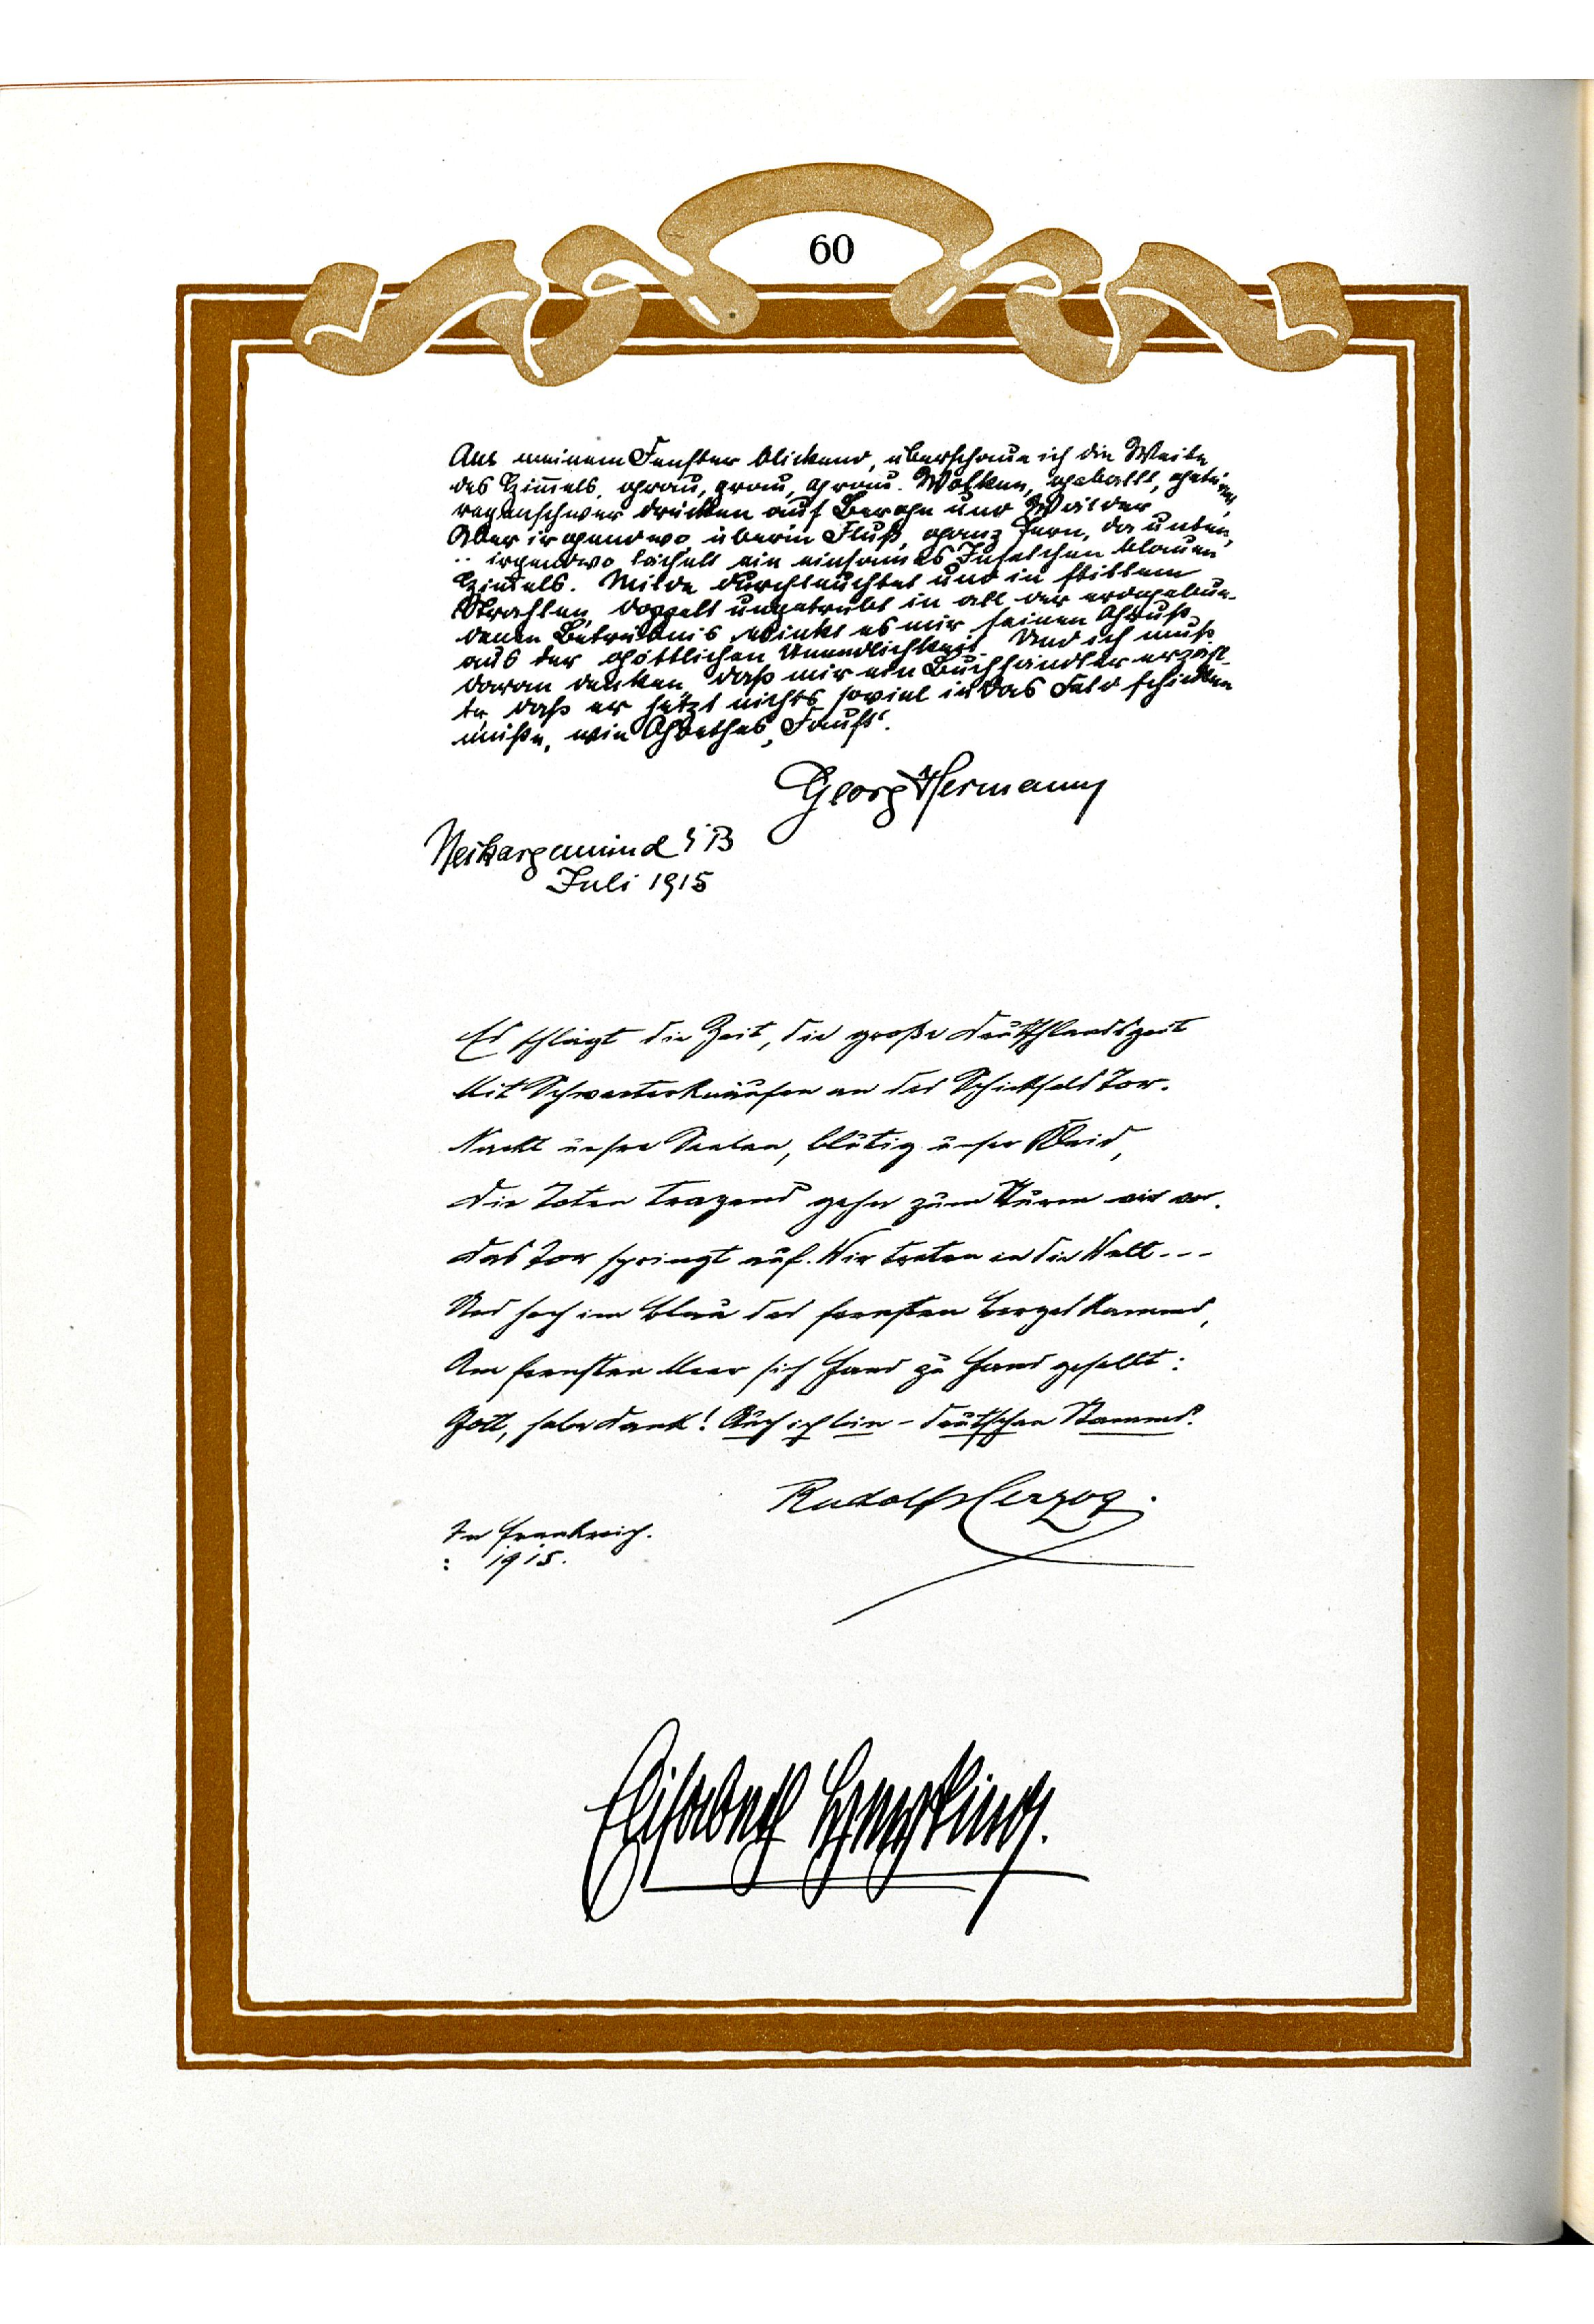 60
Aus meinem Fenster blickend, überschaue ich die Weite
des Himmels, grau, grau, grau. Wolken, geballt, getürmt,
regenschwer drücken auf Berge und Wälder.
Aber irgendwo überm Fluß, ganz fern, da unten,
.. irgendwo lächelt ein einsames Inselchen blauen
Himmels. Milde durchleuchtet und in stillem
Strahlen, doppelt ungetrübt in all der erdgebun-
denen Betrübnis winkt es mir seinen Gruß
aus der göttlichen Unendlichkeit. Und ich muß
daran denken, daß mir ein Buchhändler erzähl-
te, daß er jetzt nichts soviel in das Feld schicken
müße, wie Goethes „Faust“.
Georg Hermann
Neckargemünd i B
Juli 1915
Es schlägt die Zeit, die große Deutschlandszeit
Mit Schwerterknäufen an des Schicksals Tor.
Nackt unsre Seelen, blutig unser Kleid,
Die Toten tragend gehn zum Sturm wir vor.
Das Tor springt auf. Wir treten in die Welt - - -
Und hoch im Blau des fernsten Bergeskamms,
Am fernsten Meer sich Hand zu Hand gesellt:
Gott, habe Dank! Auch ich bin – deutschen Stamms.
Rudolf Herzog.
In Frankreich.
: 1915.
Elisabeth Heyking.